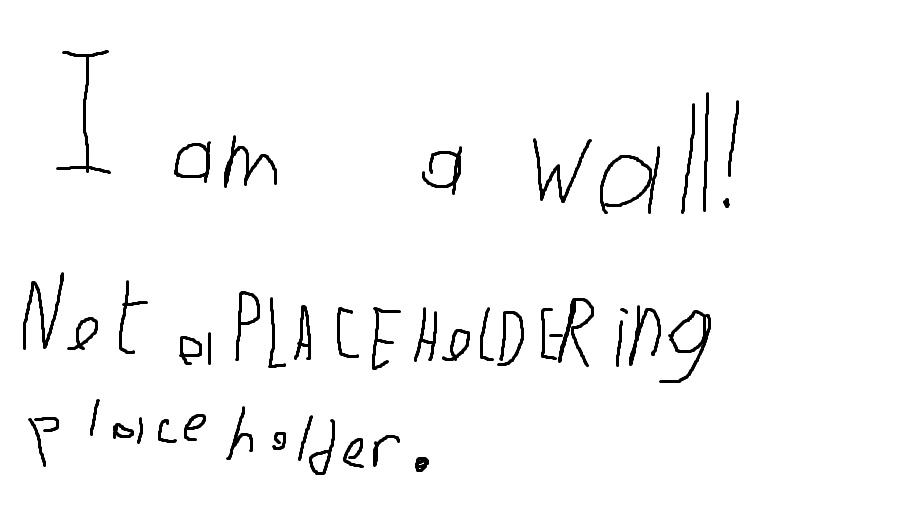 I am a wall!
Not a PLACEHOLDERing
placeholder.